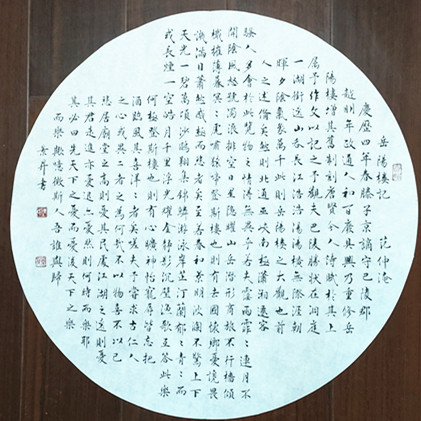 岳陽樓記 范仲淹
慶歷四年春滕子京謫守巴陵郡
越明年政通人和百廢具興乃重修岳
陽樓增其舊制刻唐賢今人詩賦於其上
屬予作文以記之予觀夫巴陵勝狀在洞庭
一湖銜遠山吞長江浩浩湯湯橫無際涯朝
暉夕陰氣象萬千此則岳陽樓之大觀也前
人之述備矣然則北通巫峽南極瀟湘遷客
騷人多會於此覽物之情得無異乎若夫霪雨霏〻連月不
開陰風怒號濁浪排空日星隱耀山岳潛形商旅不行檣傾
楫摧薄暮冥〻虎嘯猿啼登斯樓也則有去國懷鄉憂讒畏
譏滿目蕭然感極而悲者矣至若春和景明波瀾不驚上下
天光一碧萬頃沙鷗翔集錦鱗游泳岸芷汀蘭郁〻青〻而
或長煙一空皓月千里浮光耀金靜影沉璧漁歌互答此樂
何極登斯樓也則有心曠神怡寵辱皆忘把
酒臨風其喜洋〻者矣嗟夫予嘗求古仁人
之心或異二者之為何哉不以物喜不以己
悲居廟堂之高則憂其民處江湖之遠則憂
其君是進亦憂退亦憂然則何時而樂耶
其必曰先天下之憂而憂後天下之樂
而樂歟噫微斯人吾誰與歸
書